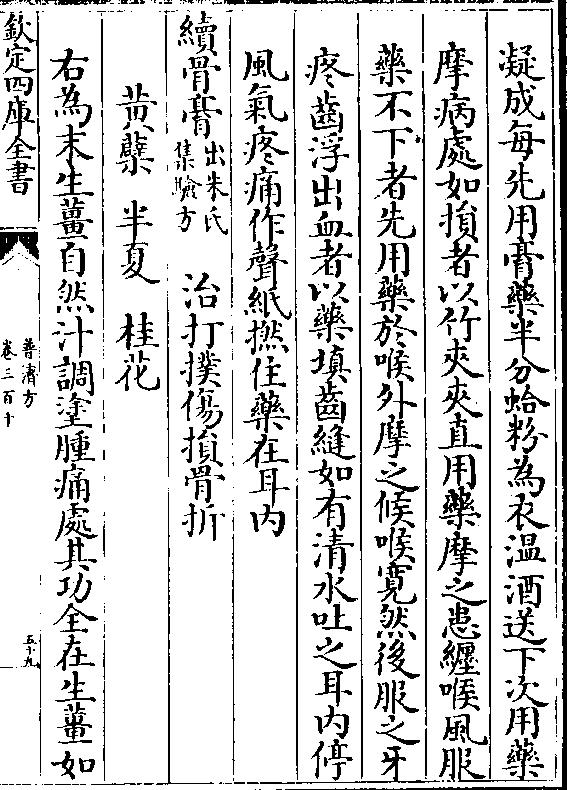 凝成每先用膏藥半分蛤粉為衣温酒送下次用藥
摩病處如損者以竹夾夾直用藥摩之患纏喉風服
藥不下者先用藥於喉外摩之候喉寛然後服之牙
疼齒浮出血者以藥填齒縫如有清水吐之耳内停
風氣疼痛作聲紙撚住藥在耳内
續骨膏出朱氏集驗方 治打撲傷損骨折
黄蘗 半夏 桂花
右為末生薑自然汁調塗腫痛處其功全在生薑如
欽定四庫全書
普濟方
卷三百十
五十九